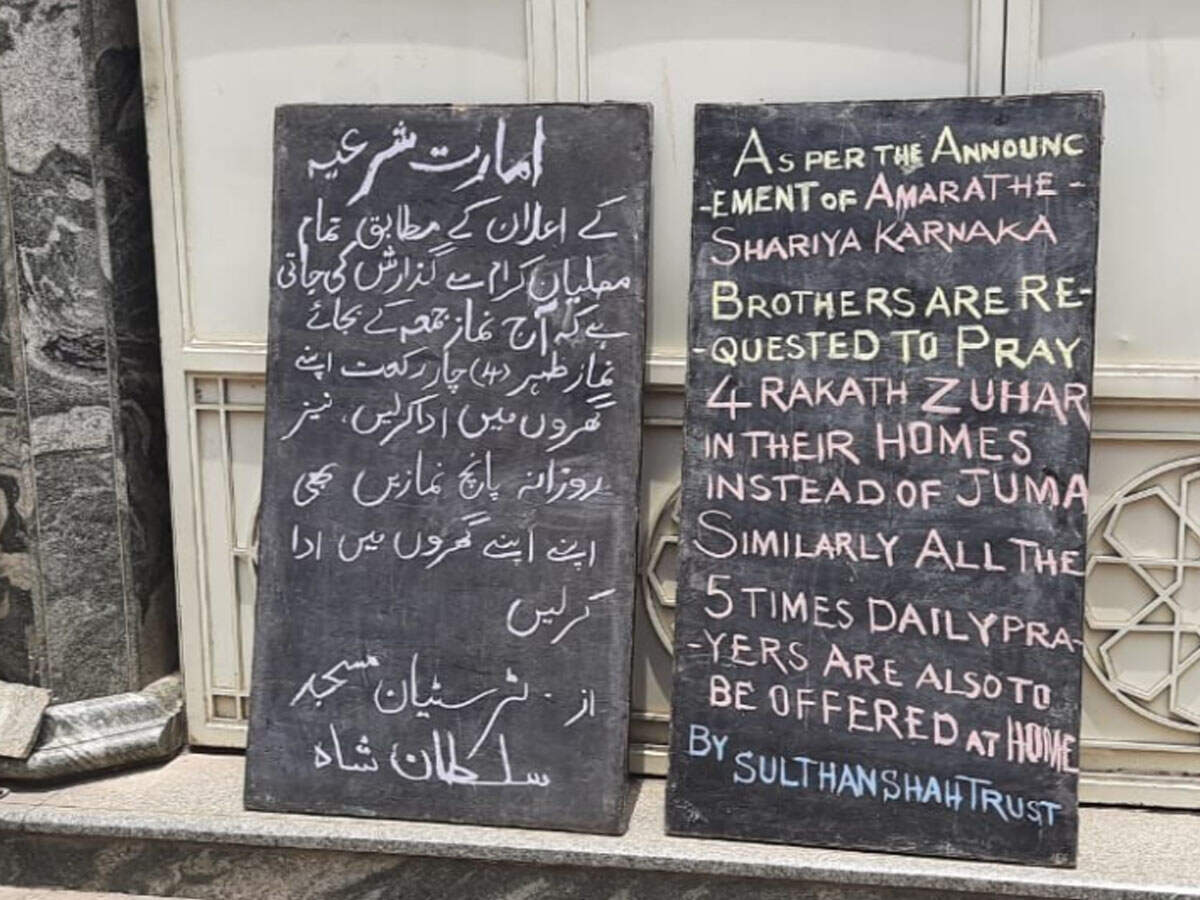 امارت شرعیہ
کے اعلان کے مطابق تمام
مصلیان کرام سے گذارش کی جاتی
ہے کہ آج نماز جمعہ کے بجائے
نماز ظہر (4) چار رکعت اپنے
گھروں میں ادا کرلیں، نیز
روزانہ پانچ نمازیں بھی
اپنے اپنے گھروں میں ادا
کرلیں
از - ٹرسٹیان مسجد
سلطان شاہ
AS PER THE ANNOUNC
-EMENT OF AMARATHE-
SHARIYA KARNAKA
BROTHERS ARE RE-
-QUESTED TO PRAY
4 RAKATH ZUHAR
IN THEIR HOMES
INSTEAD OF JUMA
SIMILARLY ALL THE
5 TIMES DAILY PRA-
-YERS ARE ALSO TO
BE OFFERED AT HOME
BY SULTHAN SHAH TRUST